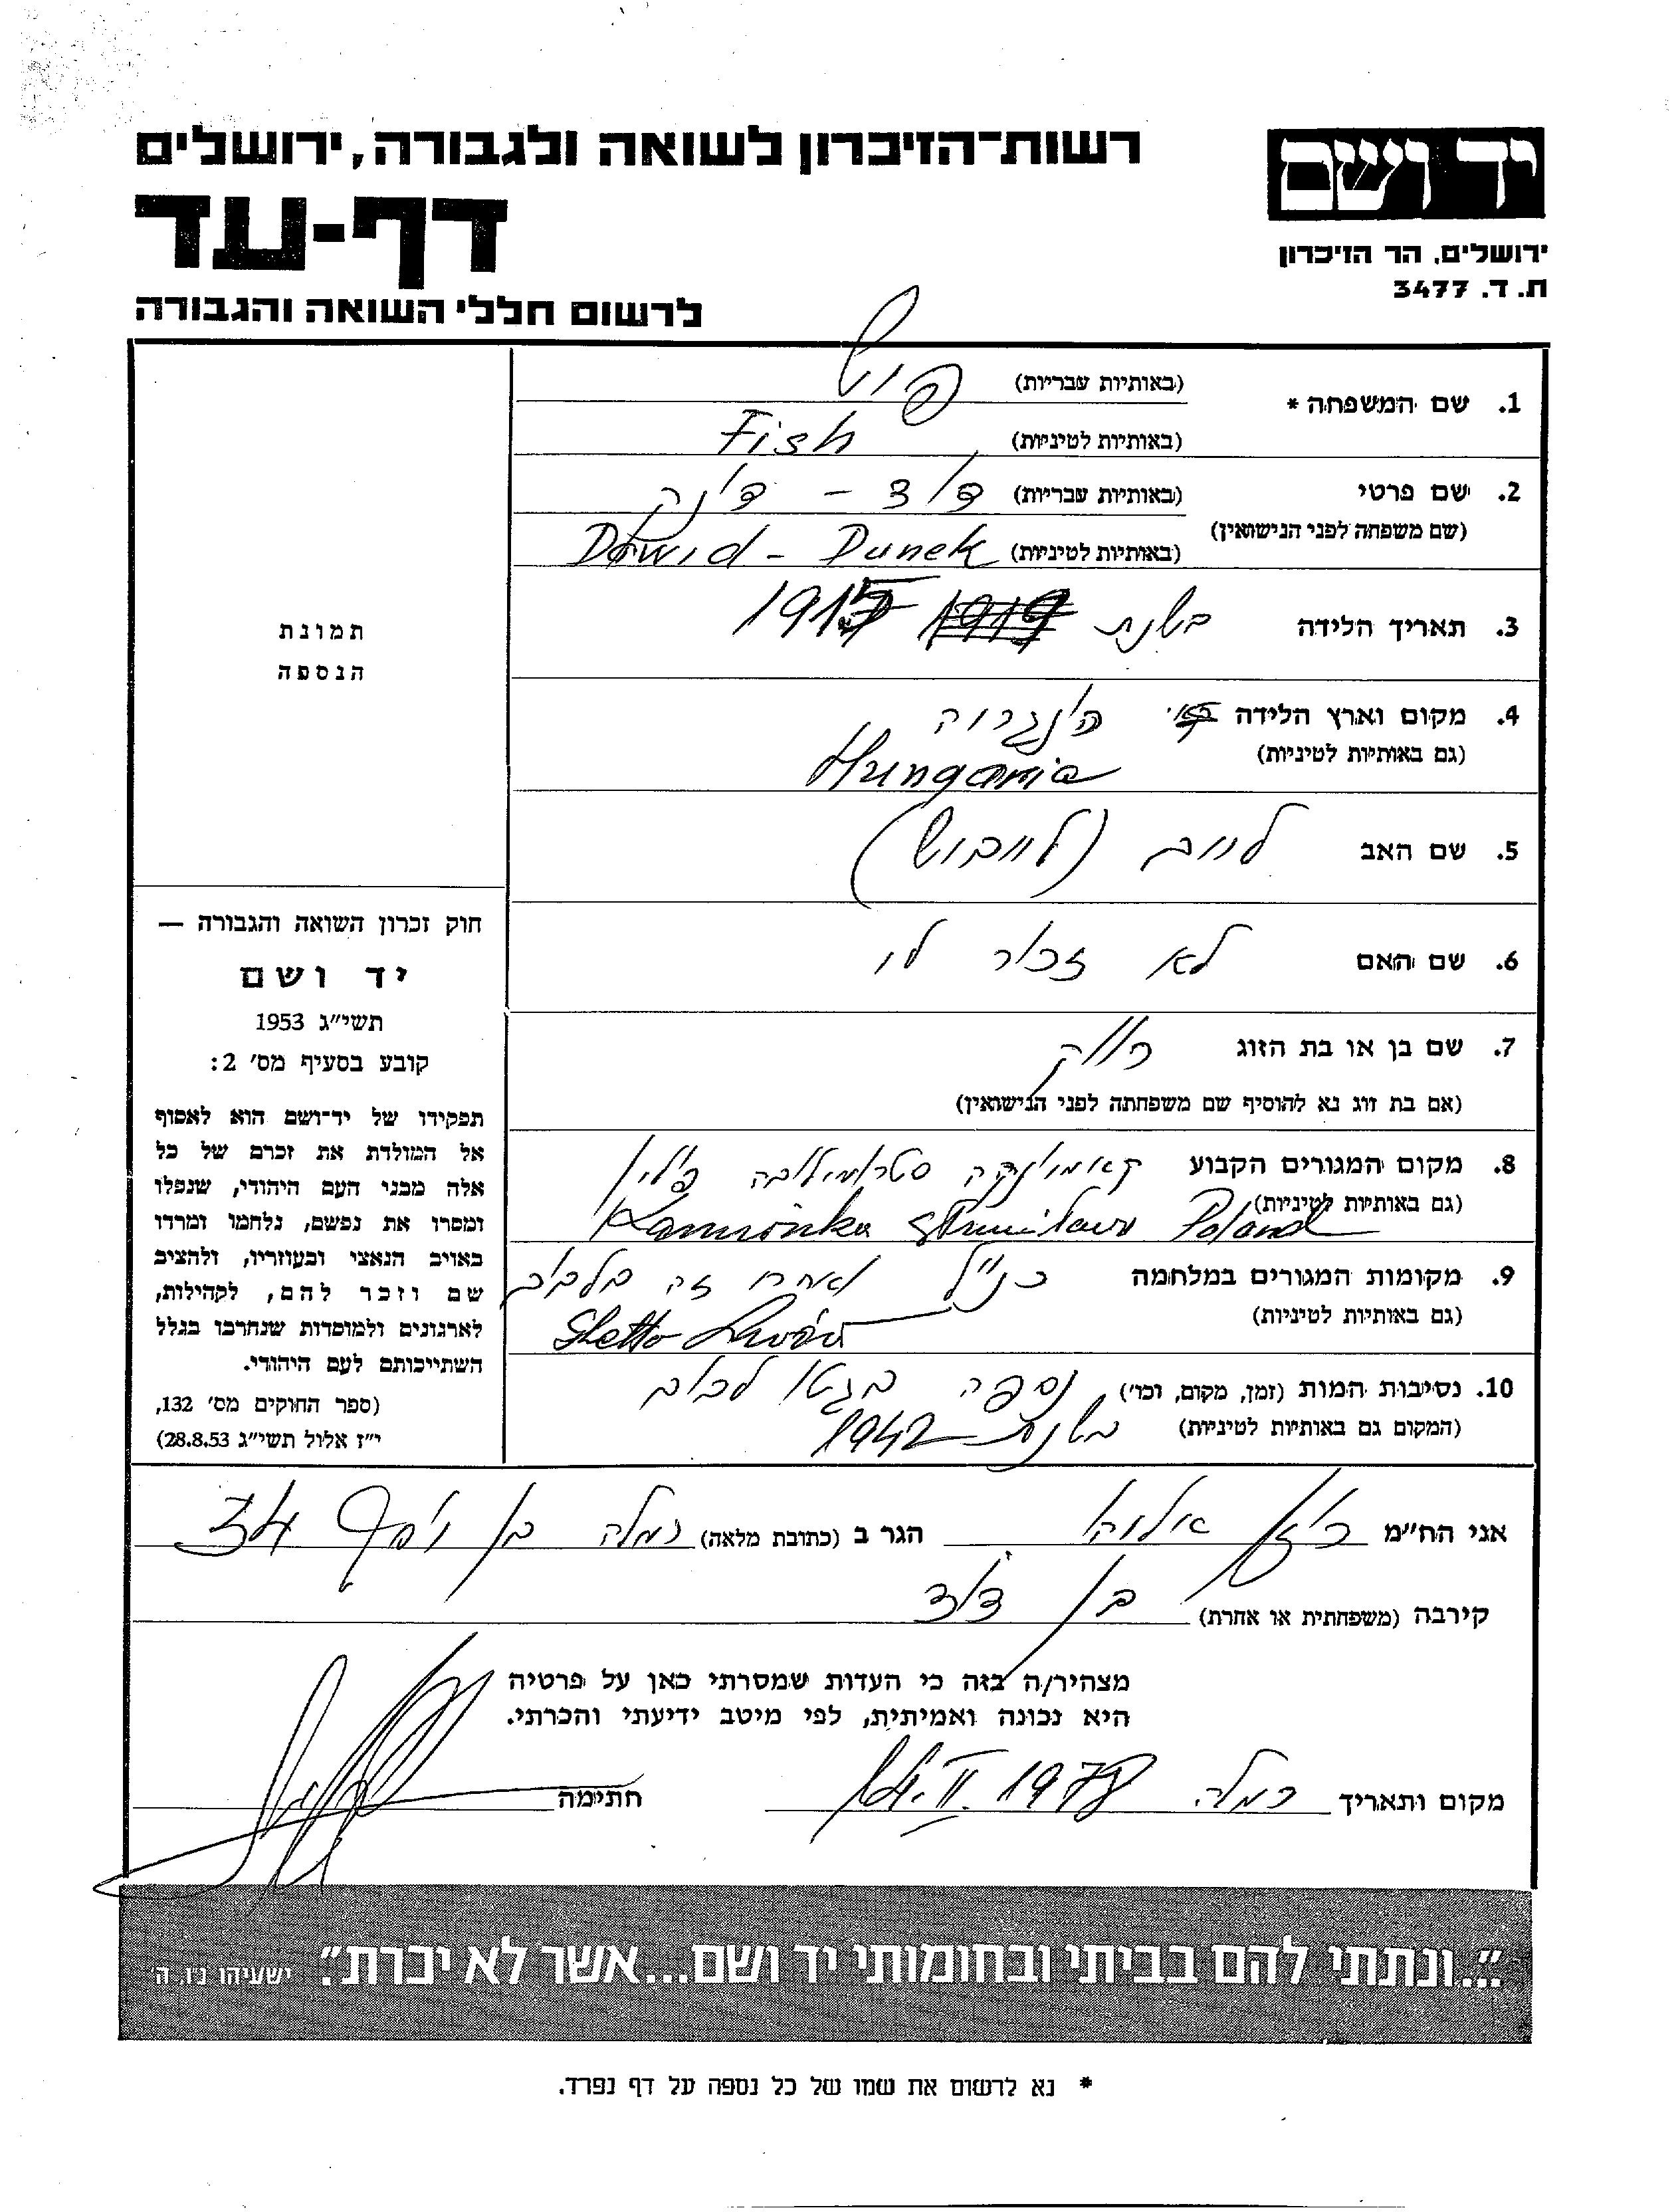 יד ושם
ירושלים, הר הזיכרון
ת. ד. 3477
רשות־הזיכרון לשואה ולגבורה, ירושלים
דף-עד
לרשום חללי השואה והגבורה
1. שם המשפחה * (באותיות עבריות) פיש
(באותיות לטיניות) Fish
2. שם פרטי (באותיות עבריות) דוד - דונק
(שם משפחה לפני הנישואין) (באותיות לטיניות) Dawid - Dunek
3. תאריך הלידה בשנת 1919 1915
4. מקום וארץ הלידה הונגריה
(גם באותיות לטיניות) Hungaria
5. שם האב לייב (לייבוש)
6. שם האם לא זכור לי
7. שם בן או בת הזוג רווק
(אם בת זוג נא להוסיף שם משפחתה לפני הנישואין)
8. מקום המגורים הקבוע קאמיונקה סטרומילובה פולין
(גם באותיות לטיניות) Kamionka Poland
9. מקומות המגורים במלחמה כנ״ל ואחרי זה בלבוב
(גם באותיות לטיניות) Ghetto Lwów
10. נסיבות המות (זמן, מקום, וכו') נספה בגטו לבוב
(המקום גם באותיות לטיניות) בשנת 1942
תמונת
הנספה
חוק זכרון השואה והגבורה —
יד ושם
תשי״ג 1953
קובע בסעיף מס' 2:
תפקידו של יד־ושם הוא לאסוף
אל המולדת את זכרם של כל
אלה מבני העם היהודי, שנפלו
ומסרו את נפשם, נלחמו ומרדו
באויב הנאצי ובעוזריו, ולהציב
שם וזכר להם, לקהילות,
לארגונים ולמוסדות שנחרבו בגלל
השתייכותם לעם היהודי.
(ספר החוקים מס' 132,
י״ז אלול תשי״ג 28.8.53)
אני הח״מ הגר ב (כתובת מלאה) רמלה 34
קירבה (משפחתית או אחרת) בן דוד
מצהיר/ה בזה כי העדות שמסרתי כאן על פרטיה
היא נכונה ואמיתית, לפי מיטב ידיעתי והכרתי.
מקום ותאריך רמלה 14.II.1978 חתימה
"...ונתתי להם בביתי ובחומותי יד ושם...אשר לא יכרת". ישעיהו נ״ו, ה'
* נא לרשום את שמו של כל נספה על דף נפרד.